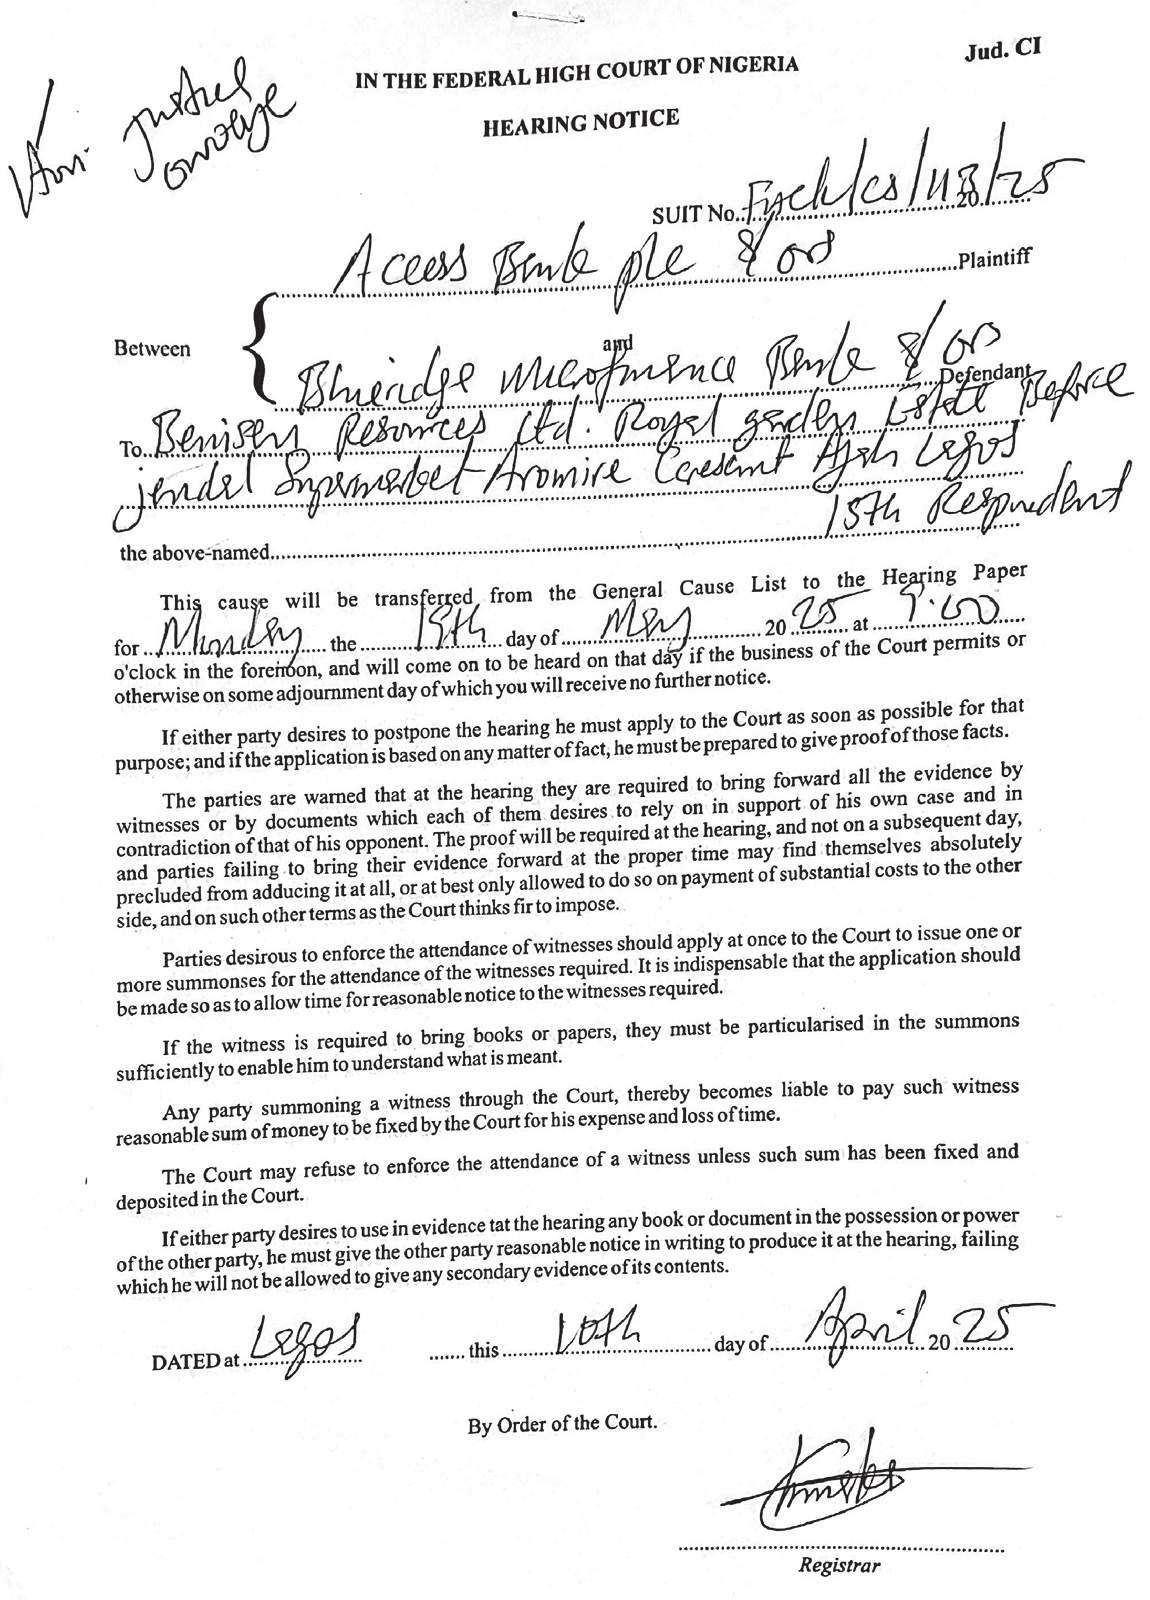 Jud. CI
IN THE FEDERAL HIGH COURT OF NIGERIA
HEARING NOTICE
Hon. Justice
SUIT No.. /CS/ 20 /25
Access Bank plc & ors Plaintiff
Between
and
Blueridge Microfinance Bank & ors Defendant
To.. Resources Ltd. Royal garden Estate Before
Supermarket Aromire Ajah Lagos
15th Respondent
the above-named
This cause will be transferred from the General Cause List to the Hearing Paper
for Monday the 19th day of May 20 25 at 9:00
o'clock in the forenoon, and will come on to be heard on that day if the business of the Court permits or
otherwise on some adjournment day of which you will receive no further notice.
If either party desires to postpone the hearing he must apply to the Court as soon as possible for that
purpose; and if the application is based on any matter of fact, he must be prepared to give proof of those facts.
The parties are warned that at the hearing they are required to bring forward all the evidence by
witnesses or by documents which each of them desires to rely on in support of his own case and in
contradiction of that of his opponent. The proof will be required at the hearing, and not on a subsequent day,
and parties failing to bring their evidence forward at the proper time may find themselves absolutely
precluded from adducing it at all, or at best only allowed to do so on payment of substantial costs to the other
side, and on such other terms as the Court thinks fir to impose.
Parties desirous to enforce the attendance of witnesses should apply at once to the Court to issue one or
more summonses for the attendance of the witnesses required. It is indispensable that the application should
be made so as to allow time for reasonable notice to the witnesses required.
If the witness is required to bring books or papers, they must be particularised in the summons
sufficiently to enable him to understand what is meant.
Any party summoning a witness through the Court, thereby becomes liable to pay such witness
reasonable sum of money to be fixed by the Court for his expense and loss of time.
The Court may refuse to enforce the attendance of a witness unless such sum has been fixed and
deposited in the Court.
If either party desires to use in evidence tat the hearing any book or document in the possession or power
of the other party, he must give the other party reasonable notice in writing to produce it at the hearing, failing
which he will not be allowed to give any secondary evidence of its contents.
DATED at Lagos this 10th day of April 20 25
By Order of the Court.
Registrar